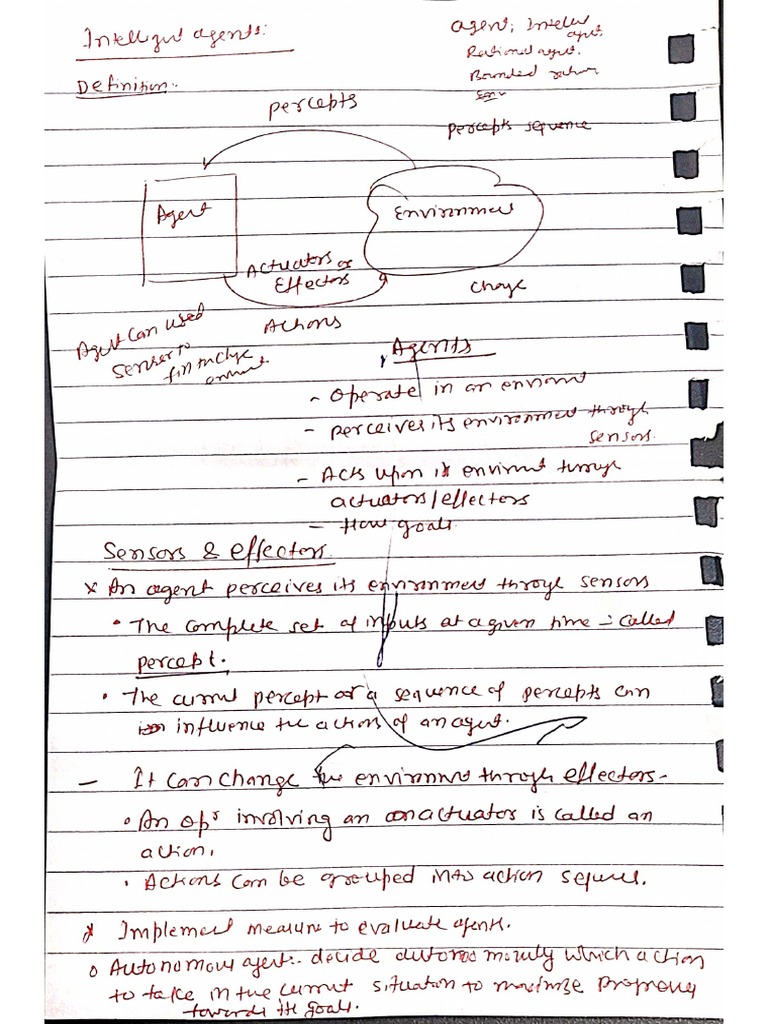 Intelligent agents:
agent, Intellig
agent.
Rational agent.
Bounded ration
Definition:
percepts
percepts sequence
Agent
Environment
Actuators or
Effectors
Change
Actions
Agent can used
senser to
Agents
- Operate in an enviromt
- perceives its environment through
sensors.
- Acts upon its enviromt through
actuators/effectors
- How goals.
Sensors & effectors.
x An agent perceives its environment through sensors
• The complete set of inputs at a given time - called
percept.
• The current percept or a sequence of percepts can
influence the actions of an agent.
- It can change the environment through effectors-
• An opr involving an actuators is called an
action.
• Actions can be grouped into action sequnce.
* Implement measure to evaluate agents.
o Autonomous agent:- decide autonomously which action
to take in the current situation to maximize progress
towards its goals.